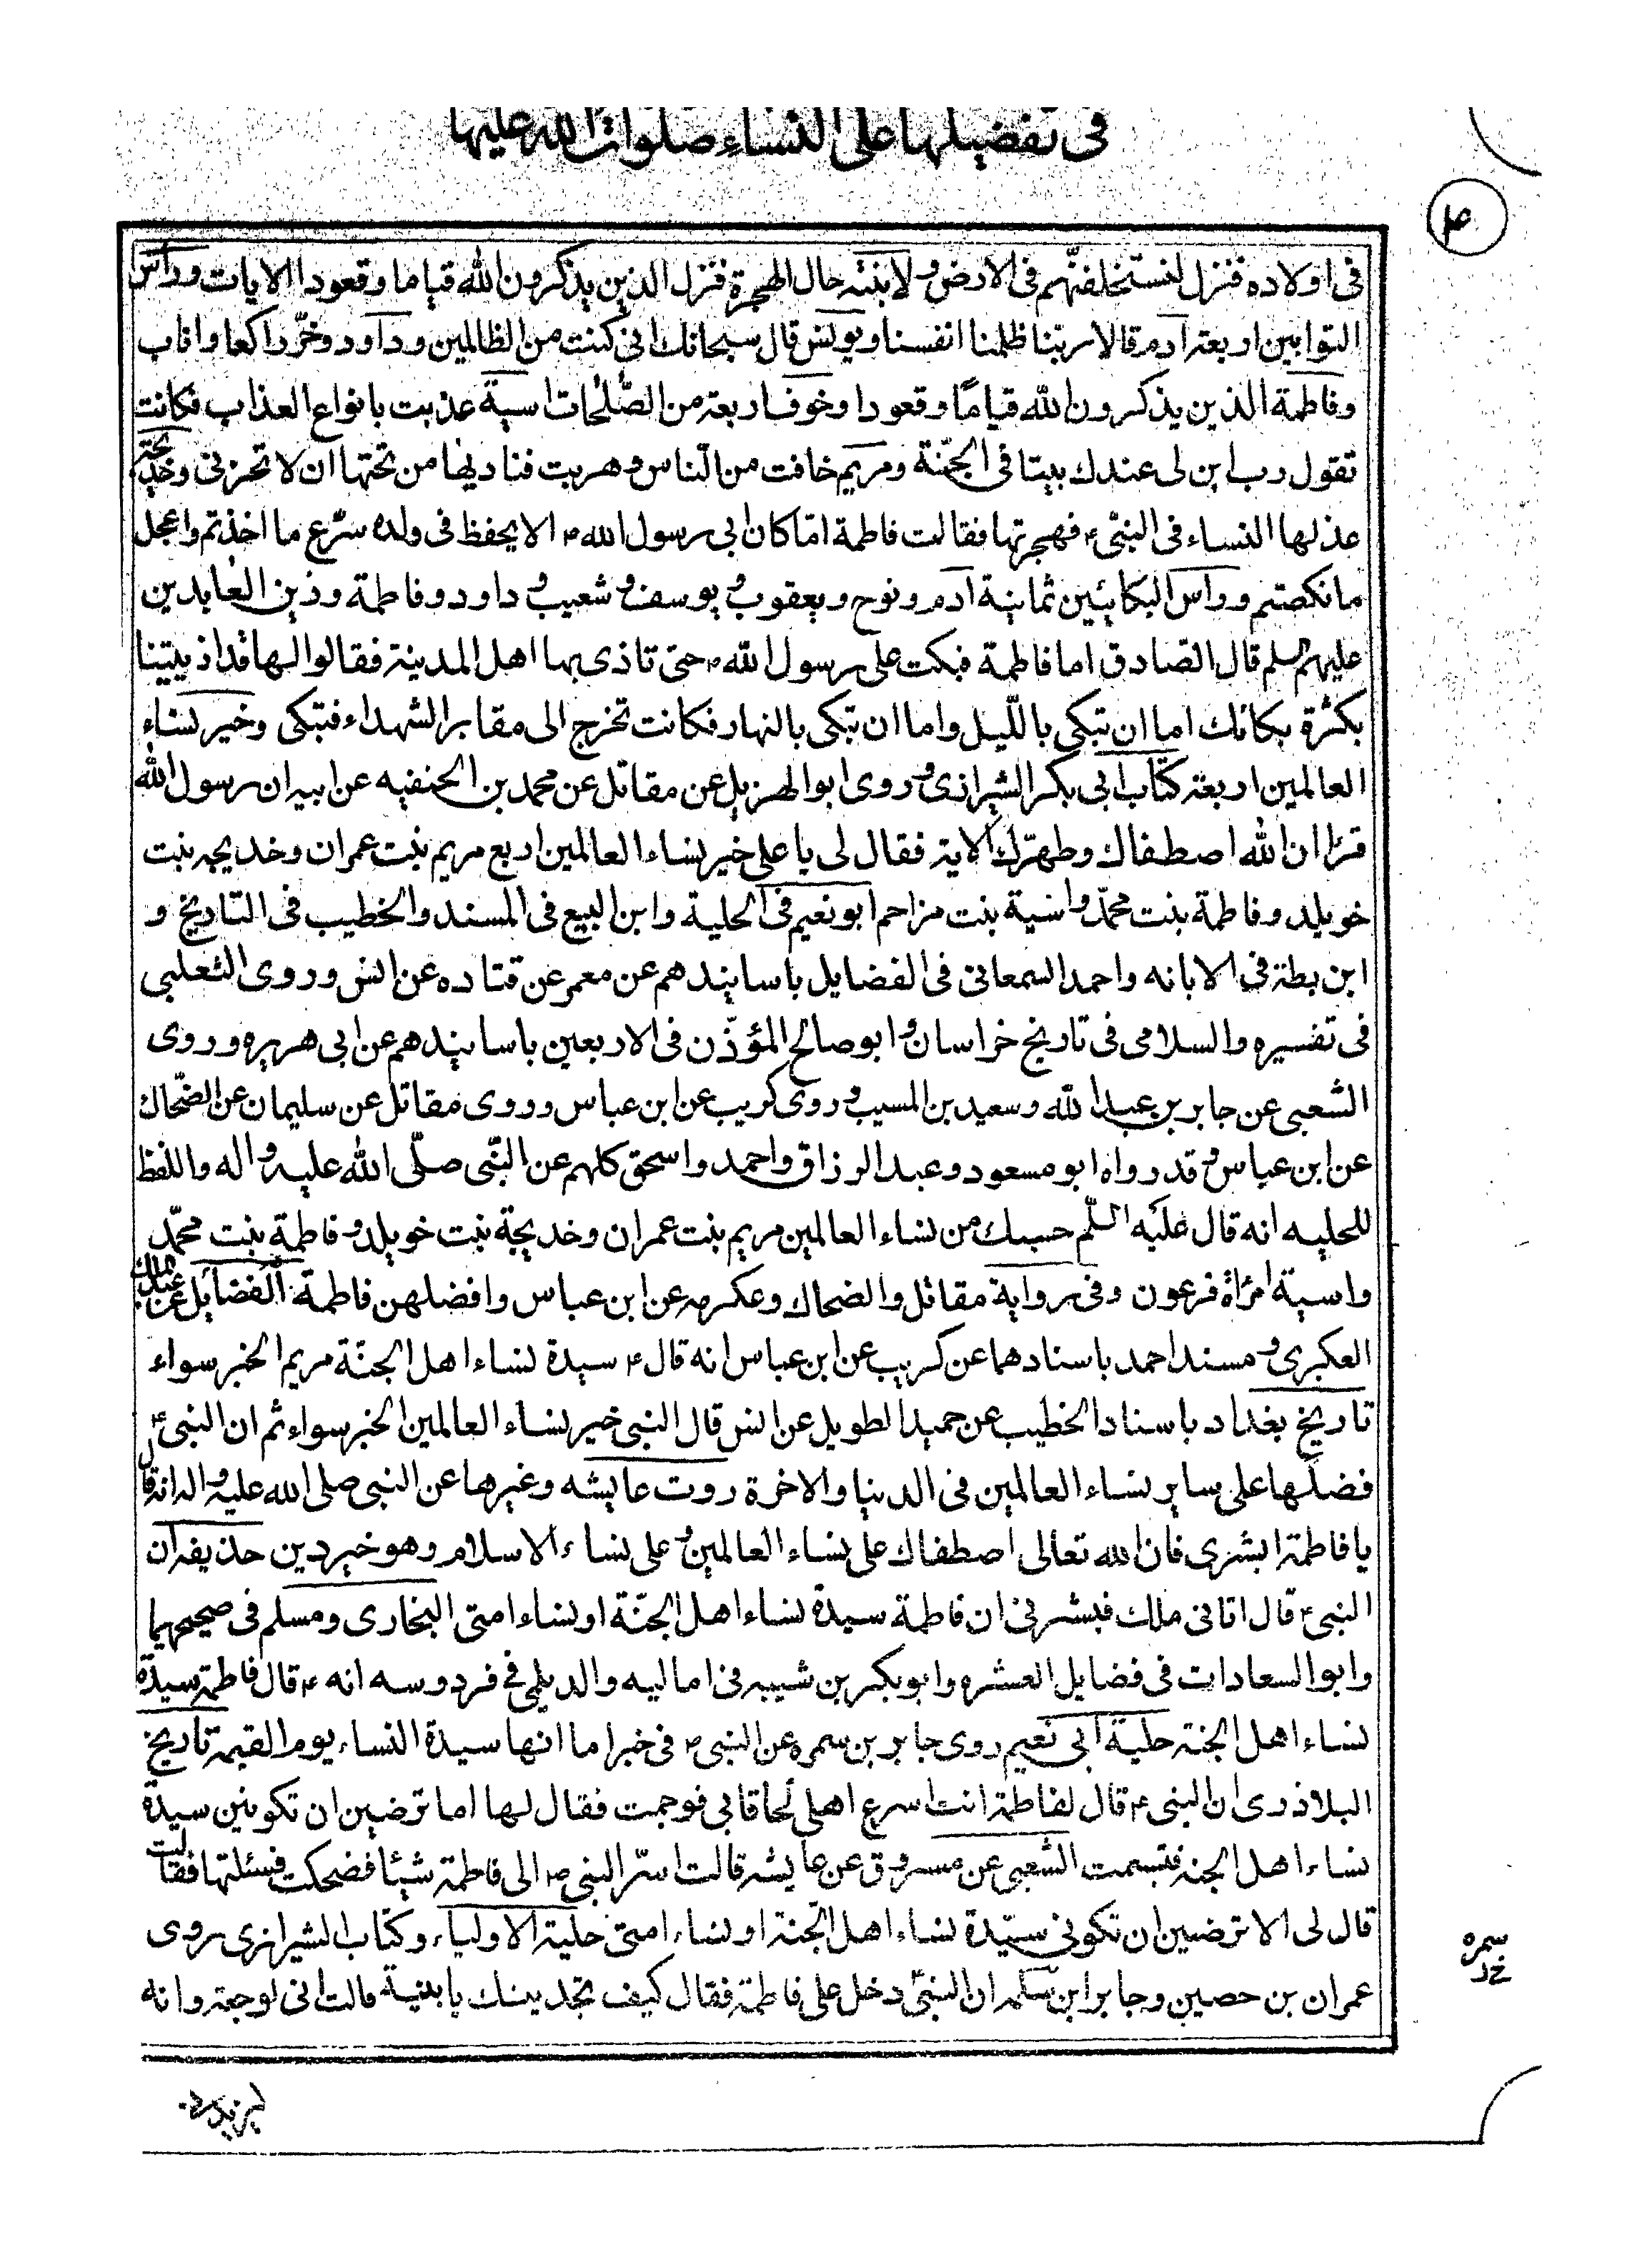 في تفضيلها على النساء صلوات الله عليها
في اولاده فنزل لنستخلفنهم في الارض ولابنته حال الهجرة فنزل الذين يذكرون الله قياما وقعودا الايات وراس
التوابين اربعة ادم قالا ربنا ظلمنا انفسنا ويونس قال سبحانك اني كنت من الظالمين وداود وخرّ راكعا واناب
وفاطمة الذين يذكرون الله قياما وقعودا وخوف اربعة من الصّٰلحات اسية عذبت بانواع العذاب فكانت
تقول رب ابن لى عندك بيتا في الجنّة ومريم خافت من النّاس وهربت فناديها من تحتها ان لا تحزنى وخديجة
عذلها النساء في النبيّ ص فهجرتها فقالت فاطمة امّا كان ابي رسول الله ص الا يحفظ في ولده سرّع ما اخذتم واعجل
ما نكصتم وراس البكائين ثمانية ادم ونوح ويعقوب ويوسف وشعيب وداود وفاطمة وزين العابدين
عليهم السلم قال الصادق اما فاطمة فبكت على رسول الله ص حتى تاذى بها اهل المدينة فقالوا لها قد اذيتينا
بكثرة بكائك اما ان تبكى بالليل واما ان تبكى بالنهار فكانت تخرج الى مقابر الشهداء فتبكى وخير نساء
العالمين اربعة كتاب ابي بكر الشيرازى وروى ابو الهزيل عن مقاتل عن محمد بن الحنفيه عن ابيه ان رسول الله
قرا ان الله اصطفاك وطهّرك الاية فقال لى يا على خير نساء العالمين اربع مريم بنت عمران وخديجه بنت
خويلد وفاطمة بنت محمّد واسية بنت مزاحم ابو نعيم في الحلية وابن البيع في المسند والخطيب في التاريخ و
ابن بطة في الابانه واحمد السمعاني في الفضايل باسانيدهم عن معمر عن قتاده عن انس وروى الثعلبى
في تفسيره والسلامى في تاريخ خراسان وابو صالح المؤذّن في الاربعين باسانيدهم عن ابي هريره وروى
الشعبى عن جابر بن عبد الله وسعيد بن المسيب وروى كريب عن ابن عباس وروى مقاتل عن سليمان عن الضّحاك
عن ابن عباس وقد رواه ابو مسعود وعبد الرزاق واحمد واسحق كلهم عن النّبى صلّى الله عليه واله واللفظ
للحليه انه قال عليه السلّم حسبك من نساء العالمين مريم بنت عمران وخديجة بنت خويلد وفاطمة بنت محمّد
واسية امرأة فرعون وفي رواية مقاتل والضحاك وعكرمه عن ابن عباس وافضلهن فاطمة الفضائل عن عبد الملك
العكبرى ومسند احمد باسنادهما عن كريب عن ابن عباس انه قال ص سيدة نساء اهل الجنّة مريم الخبر سواء
تاريخ بغداد باسناد الخطيب عن حميد الطويل عن انس قال النبى خير نساء العالمين الخبر سواء ثم ان النبى ص
فضلها على ساير نساء العالمين في الدنيا والاخرة روت عايشه وغيرها عن النبى صلى الله عليه واله انه قال
يا فاطمة ابشرى فان الله تعالى اصطفاك على نساء العالمين وعلى نساء الاسلام وهو خير دين حذيفه ان
النبى ص قال اتاني ملك فبشرني ان فاطمة سيدة نساء اهل الجنّة او نساء امتى البخارى ومسلم في صحيحهما
وابو السعادات في فضايل العشره وابو بكر بن شيبه في اماليه والديلمى في فردوسه انه ص قال فاطمة سيدة
نساء اهل الجنة حلية ابي نعيم روى جابر بن سمره عن النبى ص في خبر اما انها سيدة النساء يوم القيمة تاريخ
البلاذرى ان النبى ص قال لفاطمة انت اسرع اهلى لحاقا بي فوجمت فقال لها اما ترضين ان تكونين سيدة
نساء اهل الجنة فتبسمت الشعبى عن مسروق عن عايشه قالت اسرّ النبى ص الى فاطمة شيئا فضحكت فسئلتها فقالت
قال لى الا ترضين ان تكوني سيّدة نساء اهل الجنة او نساء امتى حلية الاولياء وكتاب الشيرازى روى
عمران بن حصين وجابر ابن سمره ان النبىّ دخل على فاطمة فقال كيف تجدينك يا بنية قالت انى لوجعة وانه
سمره
خ د
ليزيدني